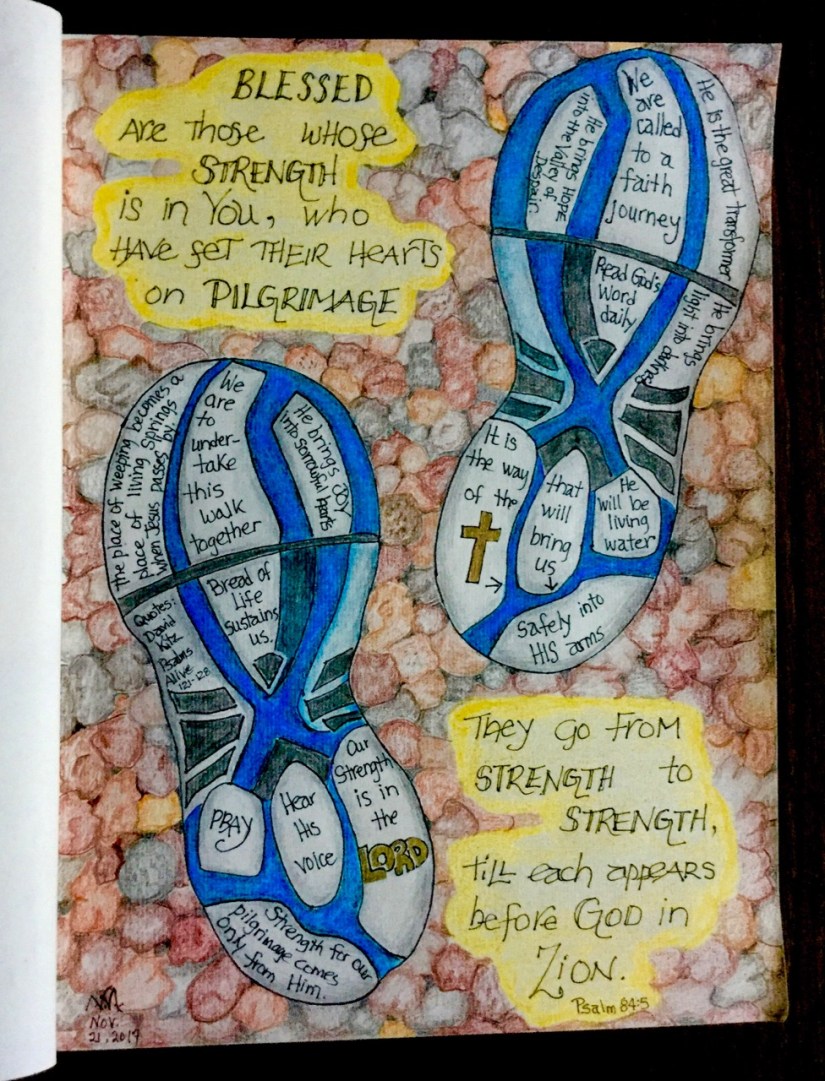 BLESSED
Are Those WHOSE
STRENGTH
is in You, who
HAVE SET THEIR HEARTS
on PILGRIMAGE
He brings Hope
into the Valley of
Despair
We
are
called
to a
faith
journey
He is the great transformer
He brings
light into darkness
Read God's
Word
daily
It is
the way
of the
that
will
bring
us
He
will be
living
water
safely into
HIS arms
The place of weeping becomes a
place of living springs
when Jesus passes by.
We
are
to
under-
take
this
walk
together
He brings JOY
into sorrowful hearts
Quotes:
David
Kitz
Psalms
Alive
121-128
Bread of
Life
sustains
us.
PRAY
Hear
His
voice
Our
Strength
is in
the
LORD
Strength for our
pilgrimage comes
only from Him.
They go from
STRENGTH to
STRENGTH,
till each appears
before GOD in
ZION.
Psalm 84:5
NOV.
21, 2017